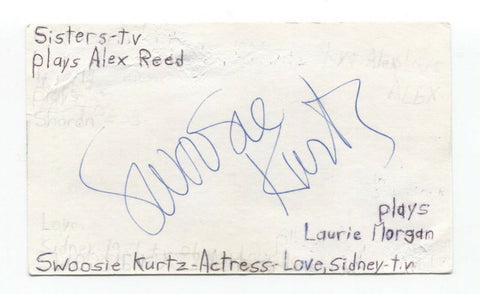 Sisters-t.v
plays Alex Reed
Swoosie
Kurtz
plays
Laurie Morgan
Swoosie Kurtz-Actress-Love, Sidney-t.v